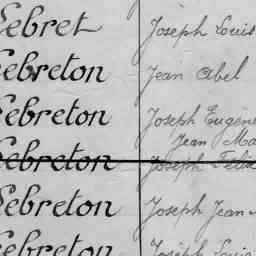 Lebret Joseph Louis
Lebreton Jean Abel
Lebreton Joseph Eugène
Jean Ma
Lebreton Joseph Felix
Lebreton Joseph Jean
Lebreton Joseph Louis